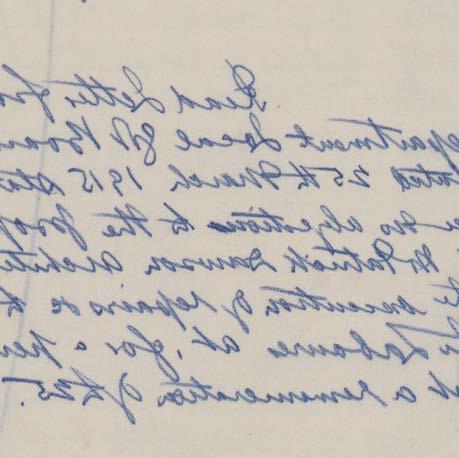 Read Letter fro
epartment Local Gt Boar
ated 25th March 1915 stat
no objection to the prop
Patrick Lawson archite
execution of repairs &c t
Labourers at, for a per
at a remuneration of £25.